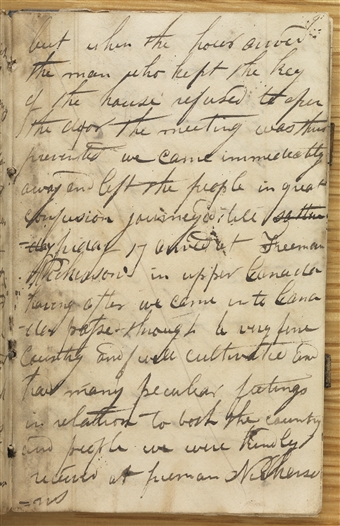 but when the hour arived
the man who kept the key
of the house refused to open
the door the meeting was thus
prevented we came immediately
away and left the people in great
confusion journeyed till
friday 17 arived at Freeman
Nickerson in upper Canada
having after we came into Cana
da passed though a very fine
Country and well cultivated and
had many peculiar feelings
in relation to both the country
and people we were kindly
received at freeman Nickerso
=ns